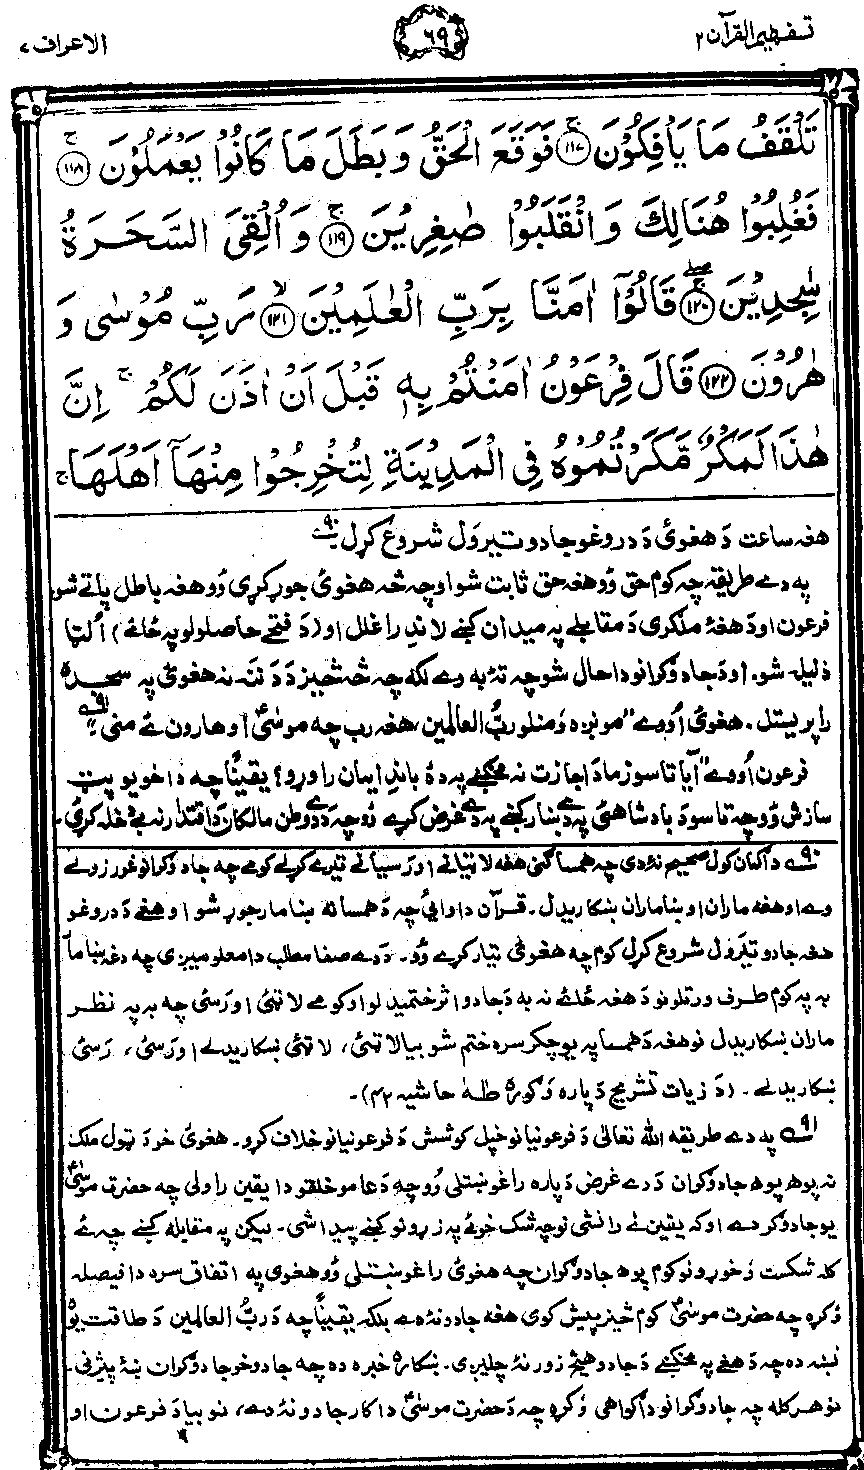 تفهيم القرآن ۲
٦٩
الاعراف ۷
تَلْقَفُ مَا يَأْفِكُوْنَ ۝١١٧ۚ فَوَقَعَ الْحَقُّ وَبَطَلَ مَا كَانُوْا يَعْمَلُوْنَ ۝١١٨ۚ
فَغُلِبُوْا هُنَالِكَ وَانْقَلَبُوْا صٰغِرِيْنَ ۝١١٩ۚ وَاُلْقِيَ السَّحَرَةُ
سٰجِدِيْنَ ۝١٢٠ۚۖ قَالُوْٓا اٰمَنَّا بِرَبِّ الْعٰلَمِيْنَ ۝١٢١ۙ رَبِّ مُوْسٰى وَ
هٰرُوْنَ ۝١٢٢ قَالَ فِرْعَوْنُ اٰمَنْتُمْ بِهٖ قَبْلَ اَنْ اٰذَنَ لَكُمْ ۚ اِنَّ
هٰذَا لَمَكْرٌ مَّكَرْتُمُوْهُ فِي الْمَدِيْنَةِ لِتُخْرِجُوْا مِنْهَآ اَهْلَهَا ۚ
هغه ساعت دَ هغوئ دَ دروغو جادو تيرول شروع کړل ۹۰
په دے طريقه چه کوم حق وُو هغه حق ثابت شو او چه څه هغوئ جوړ کړی وُو هغه باطل پاتے شو
فرعون او دَ هغۀ ملګری دَ مقابلے په ميدان کښے لاندِ راغلل او (دَ فتحے حاصلولو په ځائے) اُلټا
ذليله شو. او دَ جادوګرانو دا حال شو چه تۀ به وے لکه چه څه څيز دَ دننه نه هغوئ په سجده
را پريستل. هغوئ اُووے "مونږه ومنلو ربُّ العالمين، هغه رب چه موسٰیؑ او هارون ئے منی" ۹۱
فرعون اُووے "آيا تاسو زما دَ اجازت نه مخکښے په دۀ باندِ ايمان راوړو؟ يقيناً چه دا خو يو پټ
سازش وُو چه تاسو دَ بادشاهئ په دے ښار کښے په دے غرض کړے وُو چه دَ دے وطن مالکان دَ اقتدار نه بے دخله کړئ،
۹۰ دا ګمان کول صحيح نۀ دی چه همسا ګنی هغه لانټيانے او رسيانے تيرے کړلے کومے چه جادوګرانو غورزولے
وے او هغه ماران او ښاماران ښکاريدل. قرآن دا وائی چه دَ همسا نه ښامار جوړ شو او هغے دَ دروغو
هغه جادو تيرول شروع کړل کوم چه هغوئ تيار کړے وُو. دَ دے صفا مطلب دا معلوميږی چه دغه ښامار
به په کوم طرف ورتلو نو دَ هغه ځائے نه به دَ جادو اثر ختميدلو او کومے لانټئ او رسئ چه به په نظر
ماران ښکاريدل نو هغه دَ همسا په يو چکر سره ختم شو بيا لانټئ، لانټئ ښکاريدلے او رسئ، رسئ
ښکاريدلے. (دَ زيات تشريح دَ پاره وګوره طٰهٰ حاشيه ۴۲).
۹۱ په دے طريقه الله تعالىٰ دَ فرعونيانو خپل کوشش دَ فرعونيانو خلاف کړو. هغوئ خو دَ ټول ملک
نه پوهه پوهه جادوګران دَ دے غرض دَ پاره راغوښتلی وُو چه دَ عامو خلقو دا يقين راولی چه حضرت موسٰیؑ
يو جادوګر دے او که يقين ئے رانشی نو چه شک خوئے په زړونو کښے پيدا شی. ليکن په مقابله کښے چه ئے
کله شکست وُخوړو نو کوم پوهه جادوګران چه هغوئ راغوښتلی وُو هغوی په اتفاق سره دا فيصله
وُکړه چه حضرت موسٰیؑ کوم څيز پيش کوی هغه جادو نۀ دے بلکه يقيناً چه دَ ربُّ العالمين دَ طاقت يوه
نښه ده چه دَ هغے په مخکښے دَ جادو هيڅ زور نۀ چليږی. ښکاره خبره ده چه جادو خو جادوګران ښۀ پيژنی.
نو هر کله چه جادوګرانو دا ګواهی وکړه چه دَ حضرت موسٰیؑ دا کار جادو نۀ دے، نو بيا دَ فرعون او